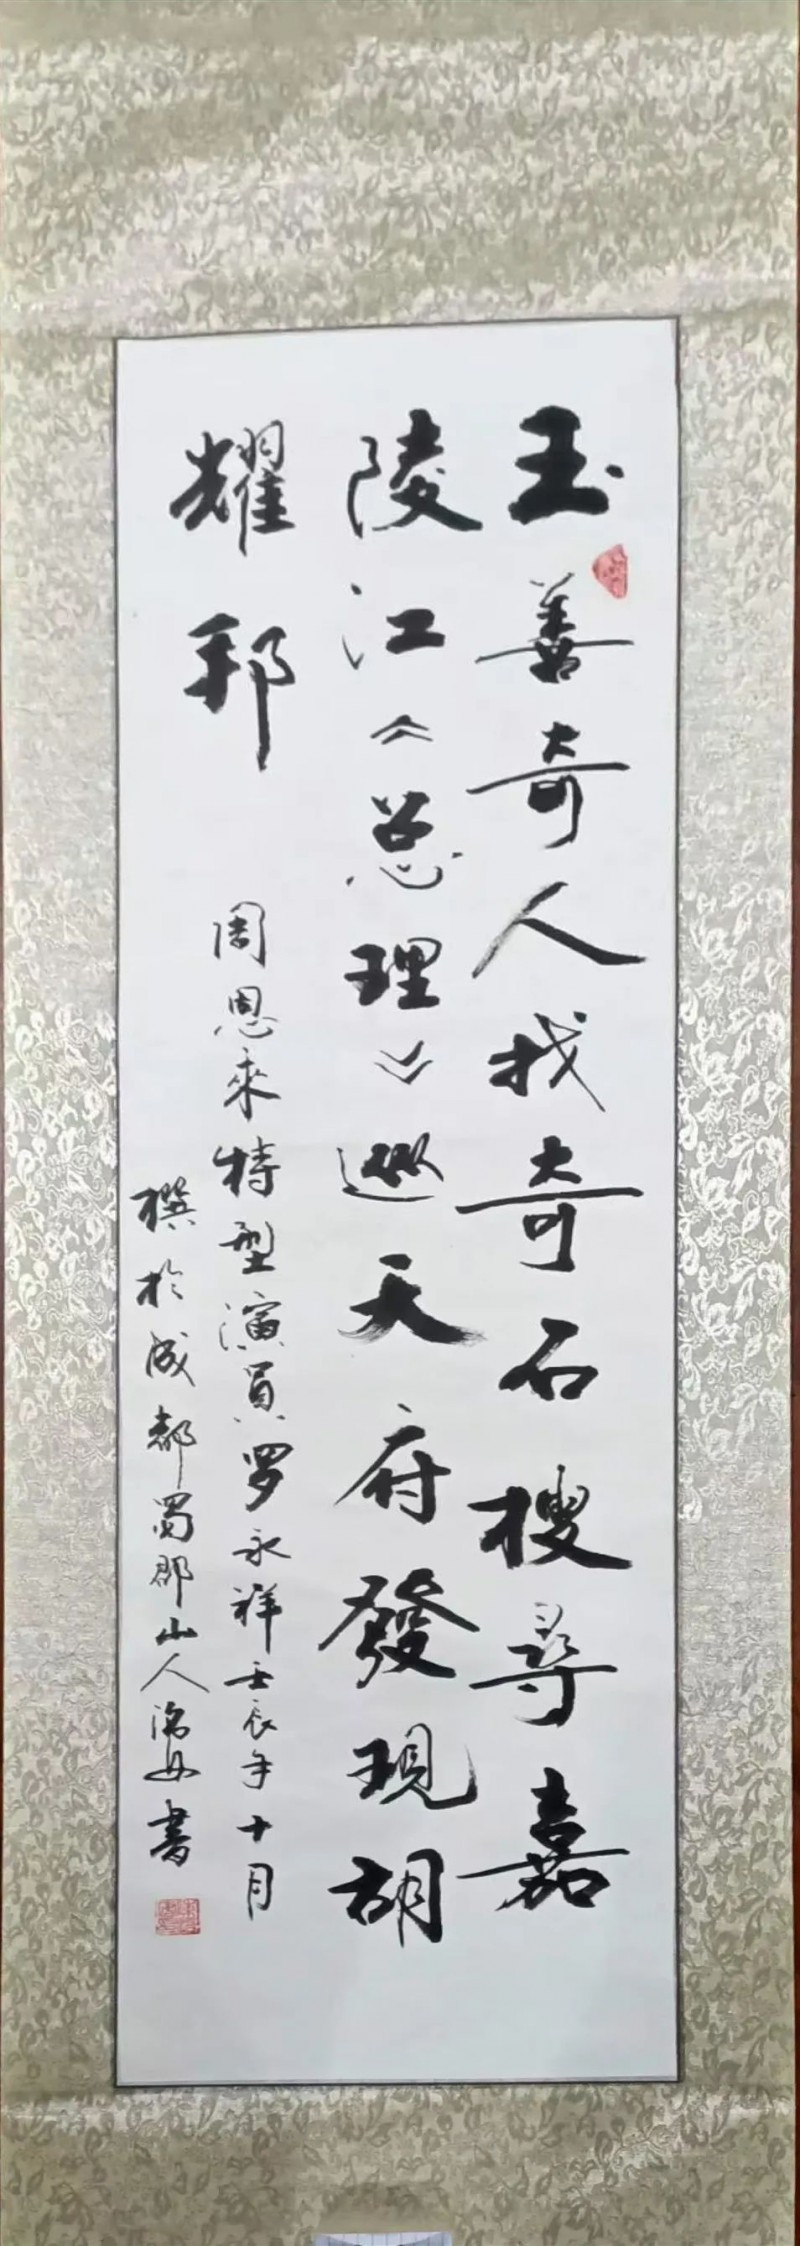 玉善奇人找奇石搜尋嘉
陵江《总理》巡天府發現胡
耀邦
周恩來特型演員罗永祥壬辰年十月
撰於成都蜀郡山人
書